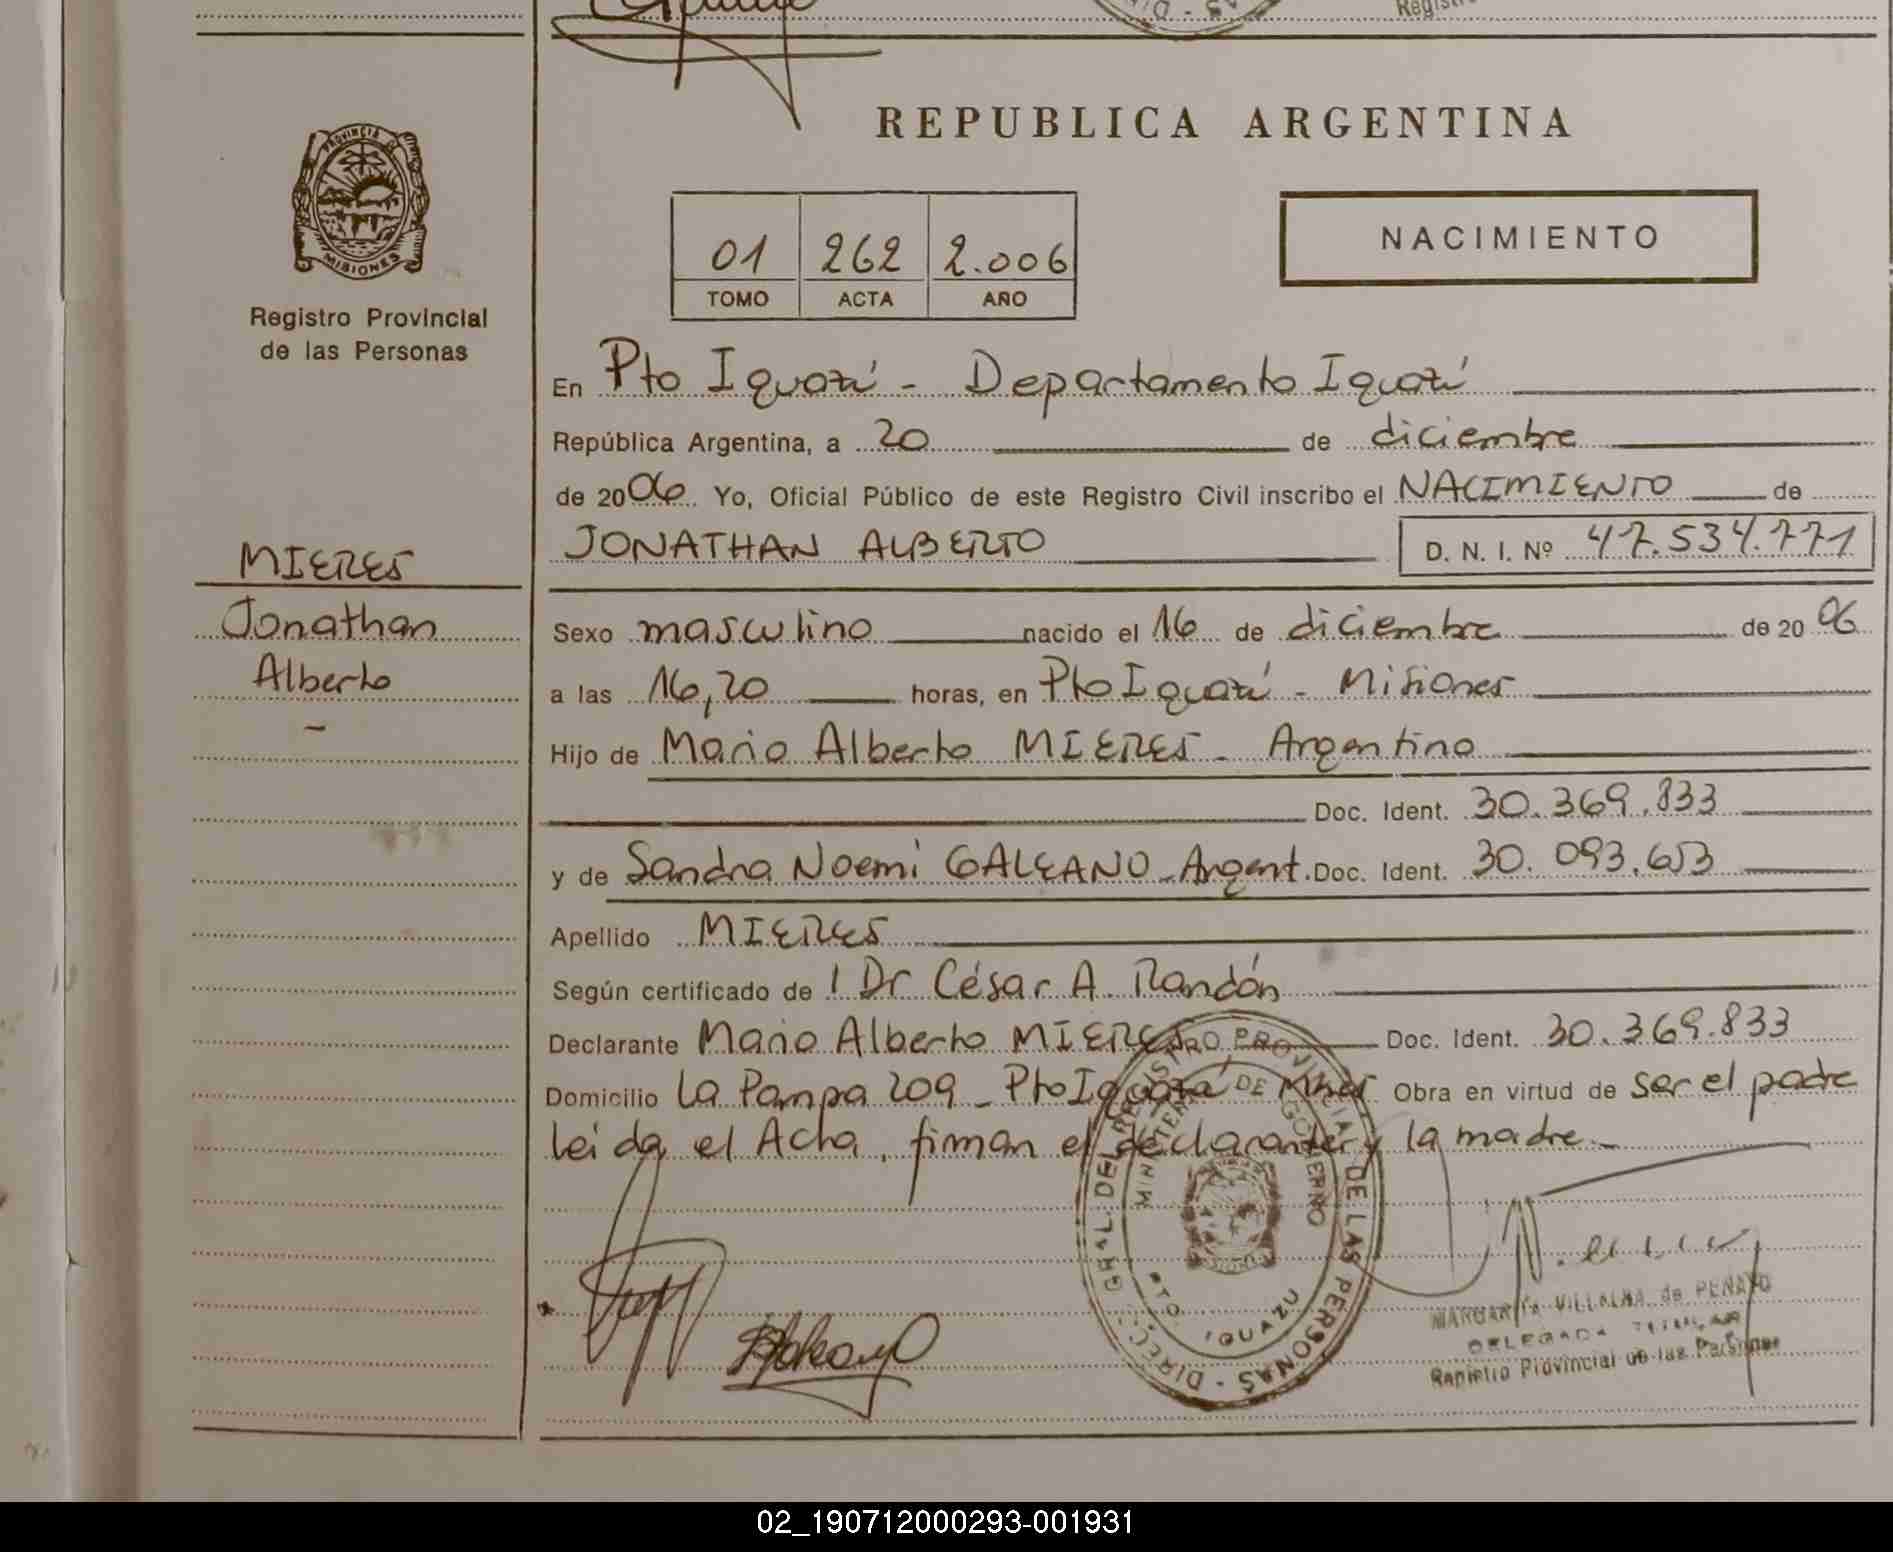 Registr
REPUBLICA ARGENTINA
PROVINCIA
MISIONES
Registro Provincial
de las Personas
01 262 2.006
TOMO ACTA AÑO
NACIMIENTO
En Pto Iguazú - Departamento Iguazú
República Argentina, a 20 de diciembre
de 2006 Yo, Oficial Público de este Registro Civil inscribo el NACIMIENTO de
JONATHAN ALBERTO D. N. I. Nº 47.534.771
MIERES
Jonathan
Alberto
-
Sexo masculino nacido el 16 de diciembre de 2006
a las 16,20 horas, en Pto Iguazú - Misiones
Hijo de Mario Alberto MIERES - Argentino
Doc. Ident. 30.369.833
y de Sandra Noemi GALEANO - Argent. Doc. Ident. 30.093.653
Apellido MIERES
Según certificado de l Dr César A. Randón
Declarante Mario Alberto MIERES Doc. Ident. 30.369.833
Domicilio La Pampa 209 - Pto Iguazú Mnes Obra en virtud de ser el padre
leida el Acta, firman el declarante y la madre.-
DIREC. GRAL. DEL REGISTRO PROVINCIAL DE LAS PERSONAS -
MINISTERIO DE GOBIERNO
PTO. IGUAZU
MARGARITA VILLALBA de PENAYO
DELEGADA TITULAR
Registro Provincial de las Personas
02_190712000293-001931